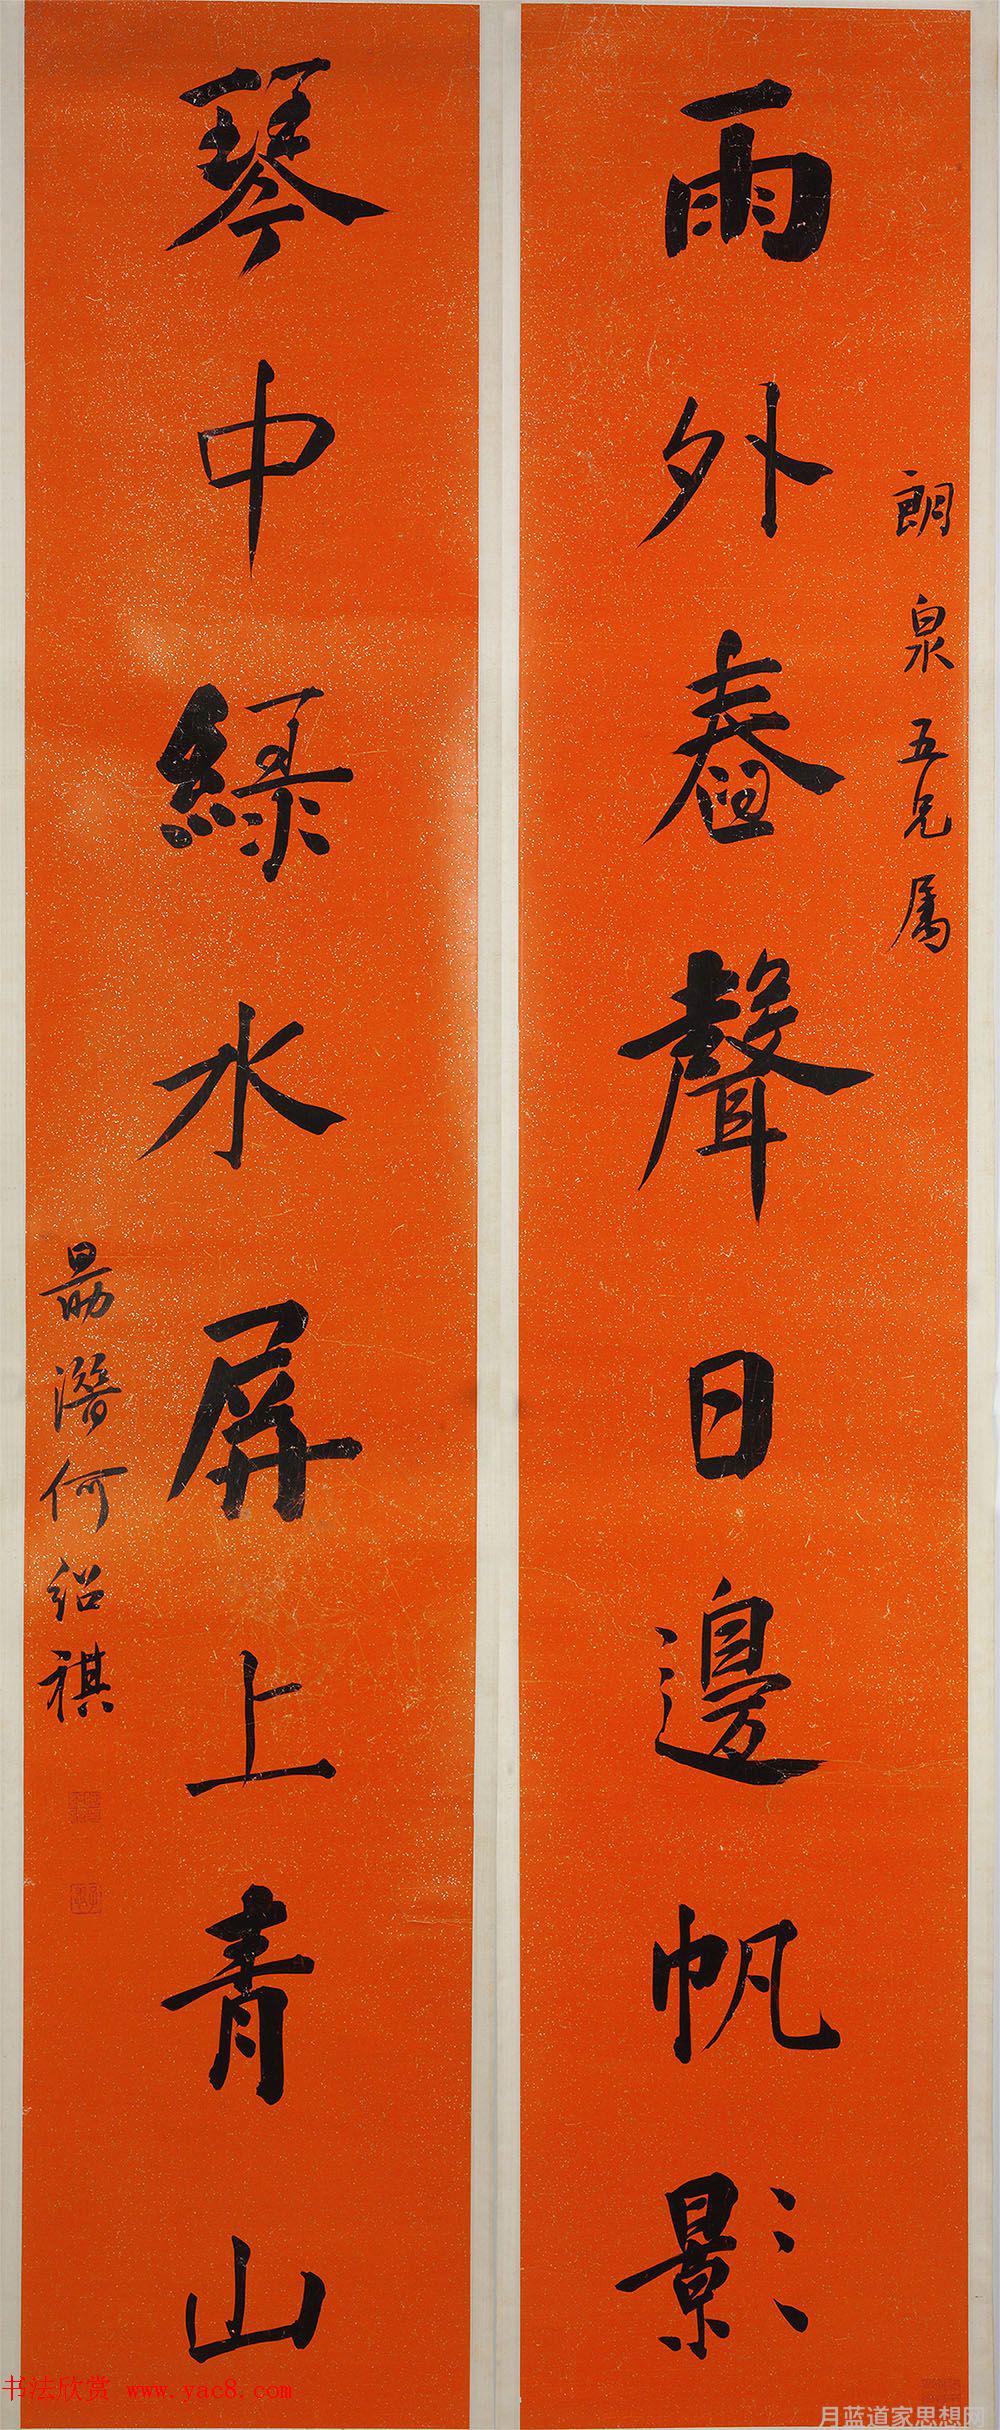 朗泉五兄属
雨外舂聲日邊帆影
琴中綠水屏上青山
勗潛何紹祺
书法欣赏 www.yac8.com
月蓝道家思想网